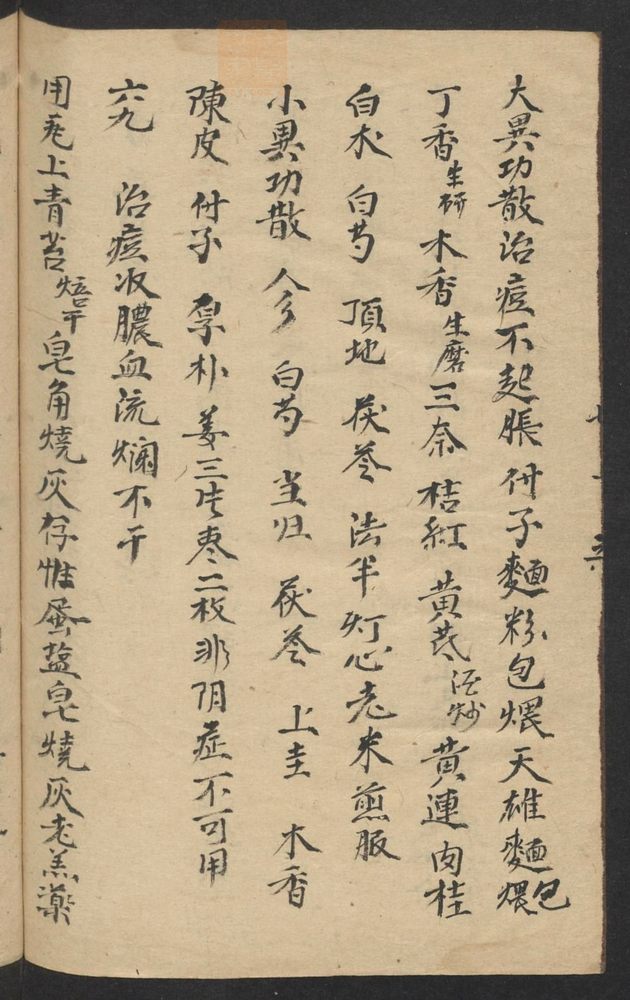 大異功散治痘不起脹付子麵粉包煨天雄麵包煨
丁香生研木香生磨三奈桔紅黄芪酒炒黄連肉桂
白术白芍頂地茯苓法半灯心老米煎服
小異功散人参白芍当归茯苓上圭木香
陳皮付子厚朴姜三片枣二枚非阴症不可用
六九 治痘收膿血流爛不干
用瓦上青苔焙干皂角燒灰存性蚕盐皂燒灰老羔藥